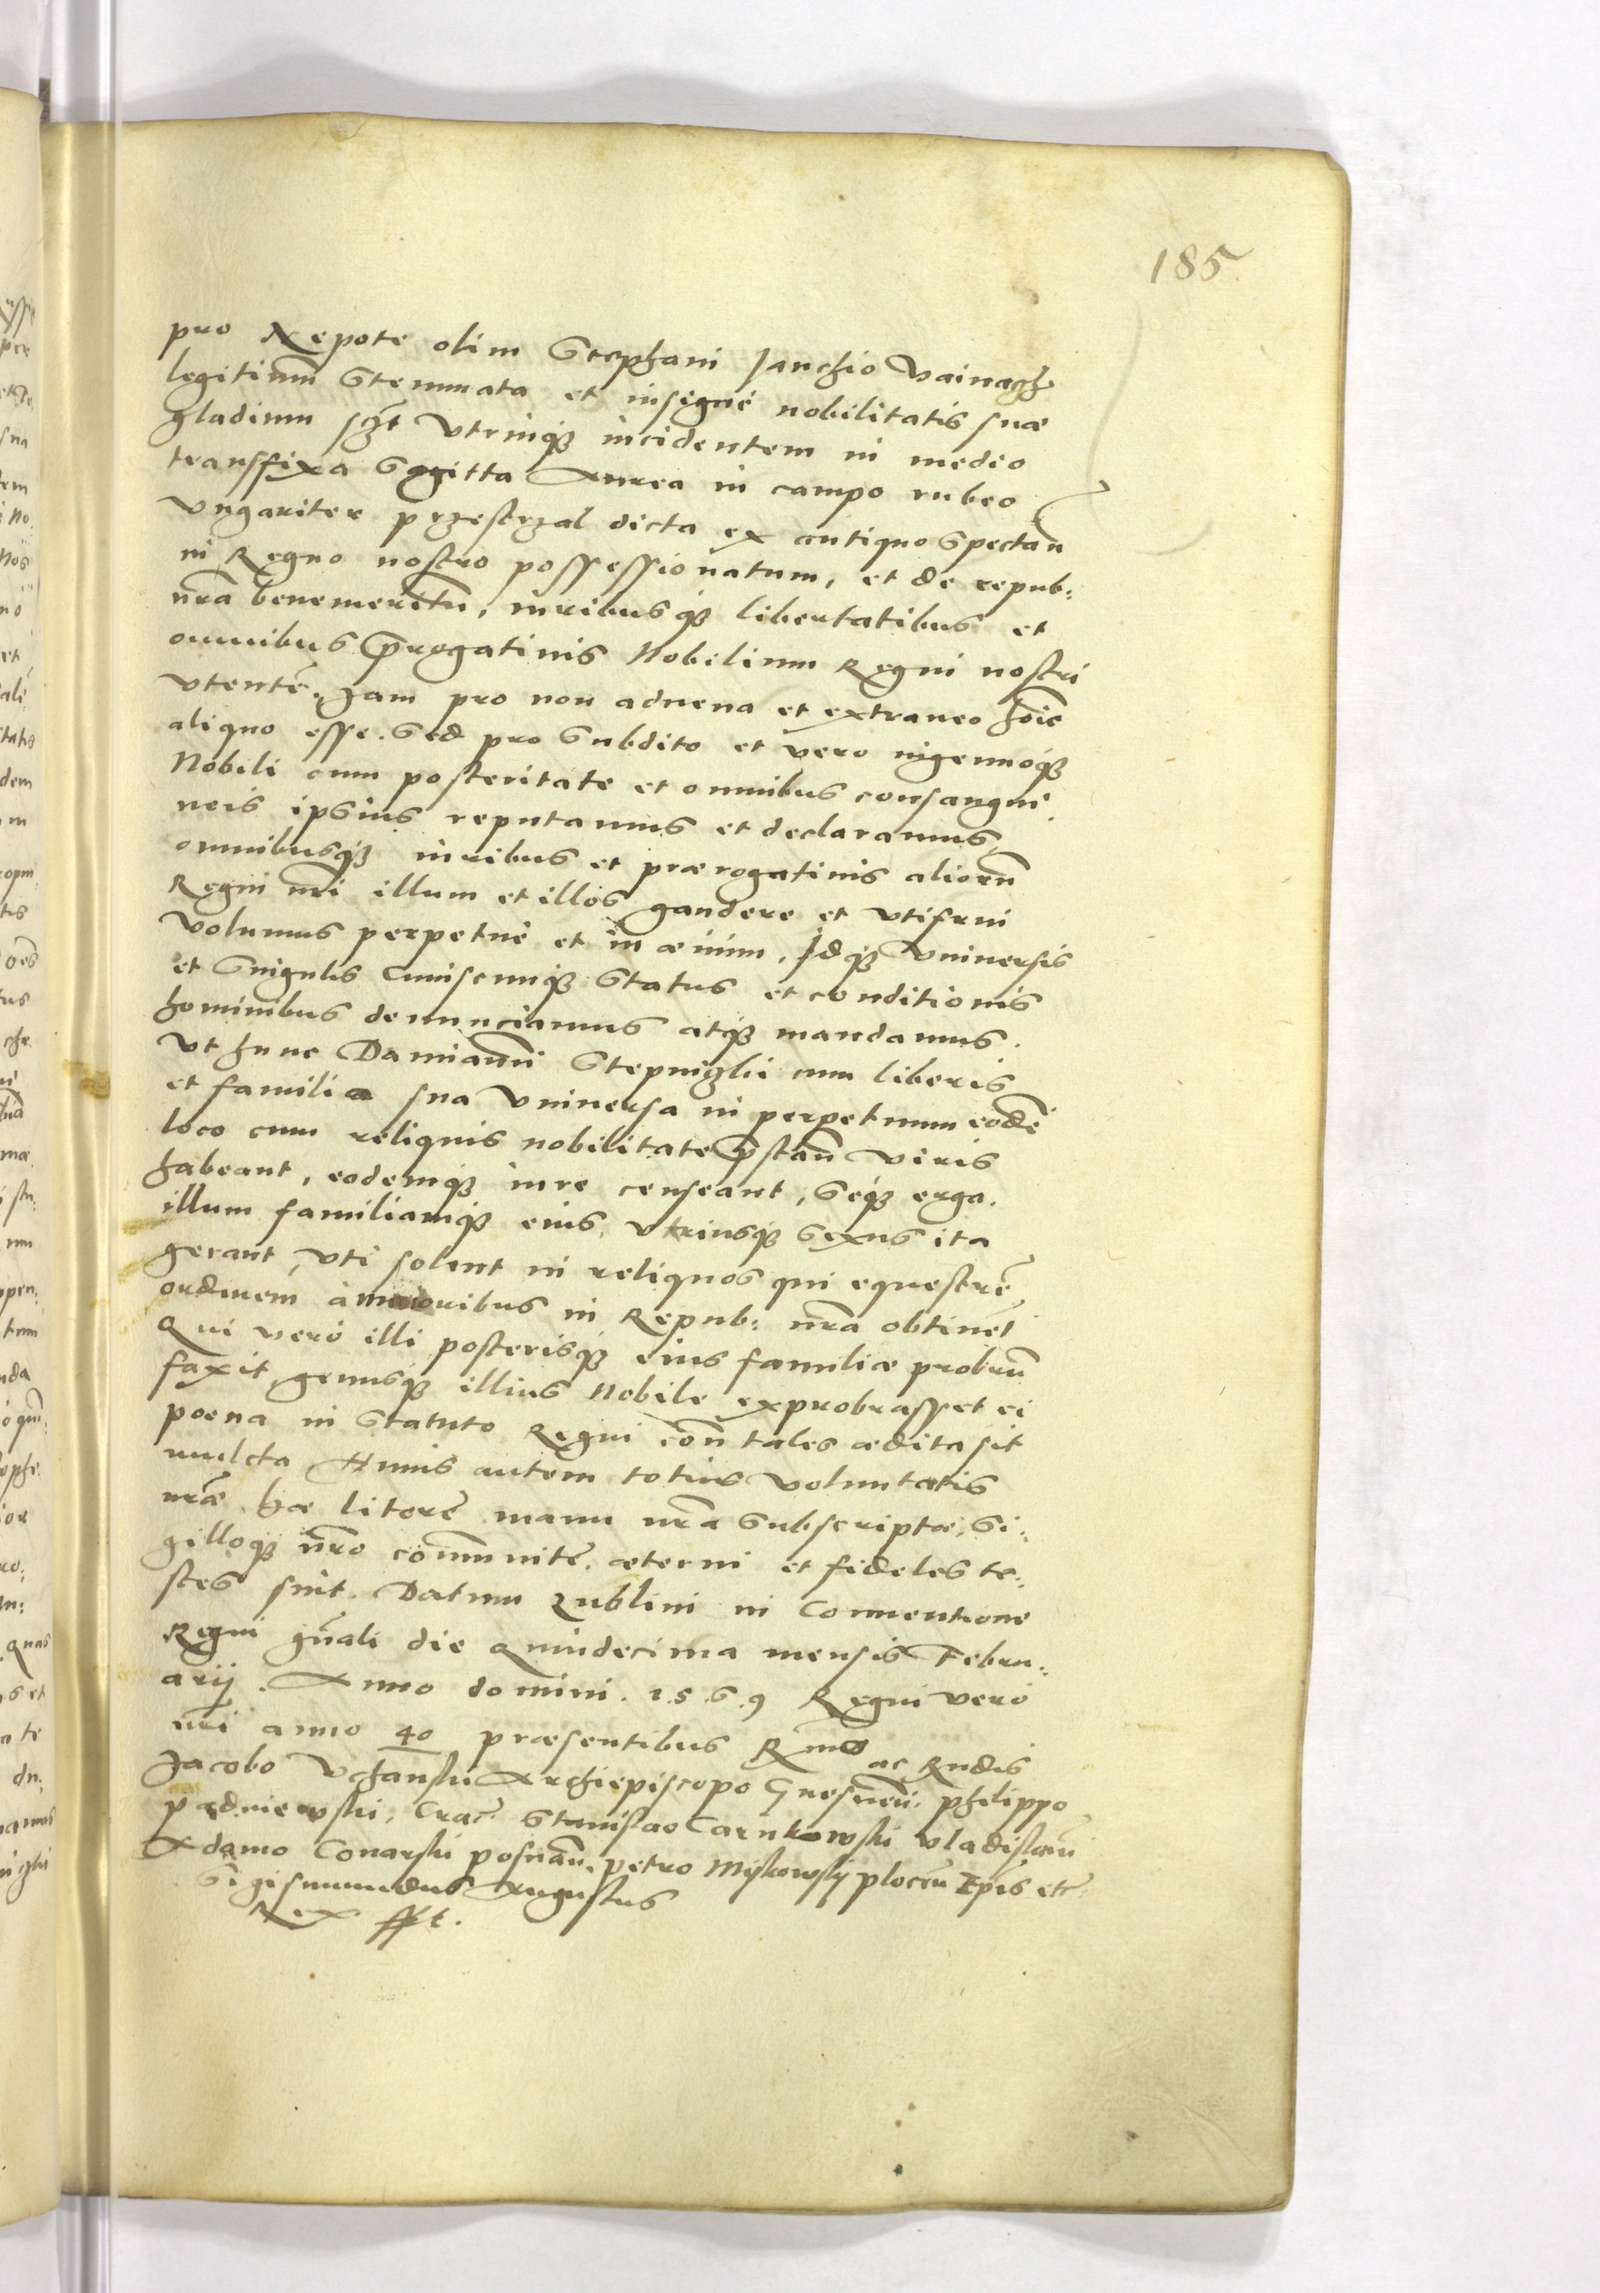 185
pro Nepote olim Stephani Janchio Vainagh
legitimū Stemmata et insigne nobilitatis suæ
gladium sczt vtrinqȝ incidentem in medio
transfixa Sagitta Aurea in campo rubeo
Vngariter przestrzal dicta ex antiquo Spectan̄
in Regno nostro possessionatum, et de repub:
nr̄a benemeritū, iuribusqȝ libertatibus et
omnibus p̄rogatiuis Nobilium Regni nostri
vtentē. Jam pro non aduena et extraneo hoīe
aliquo esse. Sed pro Subdito et vero ingenuoqȝ
Nobili cum posteritate et omnibus consangui
neis ipsius reputamus et declaramus,
omnibusqȝ iuribus et prærogatiuis aliorū
Regni nr̄i illum et illos gaudere et vtifrui
volumus perpetuè et in æuum. Idqȝ vniuersis
et Singulis Cuiuscunqȝ Status et conditionis
hominibus denunciamus atqȝ mandamus.
Vt hunc Damianū Stepniczki cum liberis
et familia sua vniuersa in perpetuum eodē
loco cum reliquis nobilitate p̄stan̄ viris
habeant, eodemqȝ iure censeant, Seqȝ erga
illum familiamqȝ eius, vtriusqȝ sexus ita
gerant, vti solent in reliquos qui equestrē
ordinem à maioribus in Repub: nr̄a obtinēt
Qui verò illi posterisqȝ eius familiæ probrū
faxit, genusqȝ illius Nobile exprobrasset ei
poena in Statuto Regni con̄ tales ædita sit
mulcta Huius autem totius voluntatis
nr̄æ hæ literæ manu nr̄a Subscriptæ, Si:
gilloqȝ nr̄o communitæ. æterni et fideles te:
stes sint. Datum Lublini in Conuentione
Regni gn̄ali die Quindecima mensis Febru:
arij. Anno domini. 1.5.6.9 Regni verò
nr̄i anno 40 præsentibus Rm̄o ac Rn̄dis
Jacobo Vchanski Archiepiscopo Gnesnen̄. Philippo
Padniewski, Crac̄. Stanislao Carnkowski Vladislauien̄
Adamo Conarski Posnan̄. Petro Miskowskij plocen̄ Ep̄is etc̄
Sigismundus Augustus
Rex sspt.